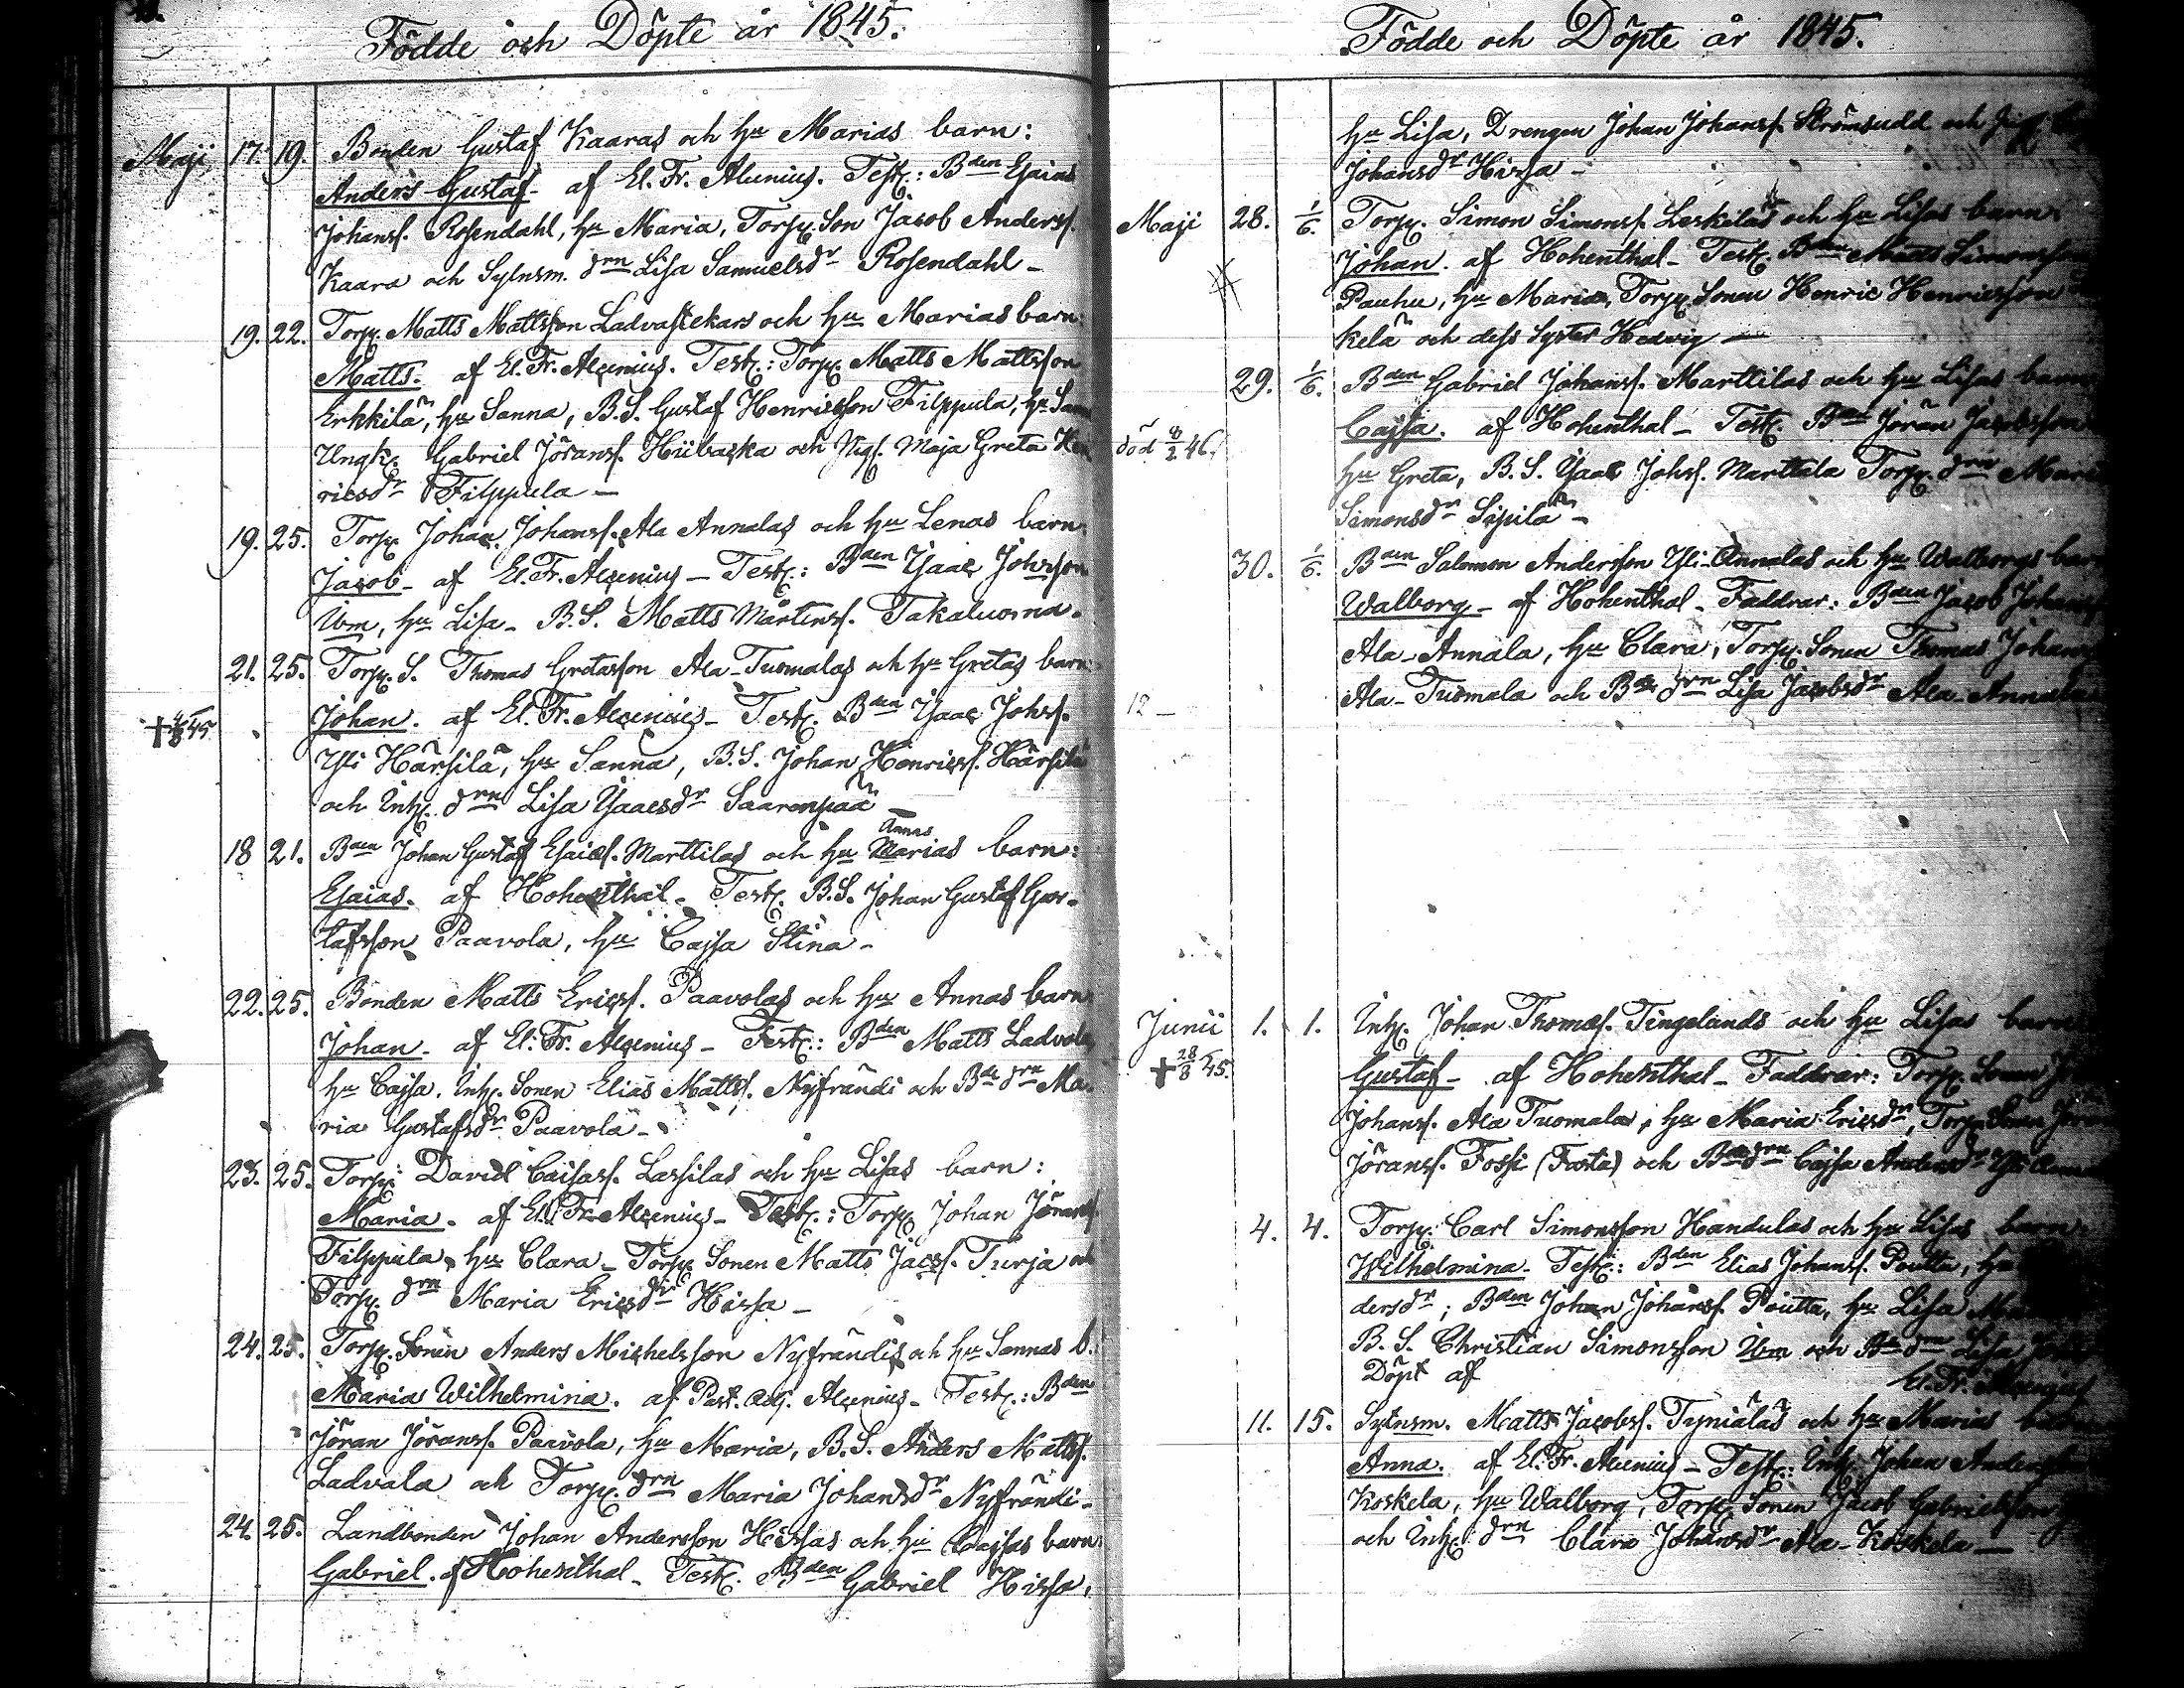 Födde och Döpte år 1845.
Maji 17. 19. Bonden Gustaf Kaaras och hu Marias barn:
Anders Gustaf. af El. Fr. Alcenius. Test: Bden Esaias
Johanss. Rosendahl, hu Maria, Torp. Son Jacob Anderss.
Kaara och Sytnsm. drn Lisa Samuelsdr Rosendahl –
19. 22. Torp. Matts Mattsson Ladvastekars och hu Marias barn:
Matts. af El. Fr. Alcenius. Test: Torp. Matts Mattsson
Erkkilä, hu Sanna, B.S. Gustaf Henricsson Filppula, hu
Ungk. Gabriel Jöransf. Hiibacka och Pigs. Maja Greta Hen
ricsdr Filppula –
19. 25. Torp. Johan Johansf. Ala Annalas och hu Lenas barn:
Jacob – af El. Fr. Alcenius – Test: Bden Isaac Johnsson
Ibm, hu Lisa – B.S. Matts Mårtensf. Takaluoma.
21. 25. Torp. S. Thomas Gretasson Ala-Tuomalas och hu Gretas barn:
Johan. af El. Fr. Alcenius – Test. Bden Isaac Johsf.
Yli Härsilä, hu Sanna, B.S. Johan Henricsf. Härsilä
och Inh. drn Lisa Isaacsdr Saarenpää –
Annas
18 21. Bden Johan Gustaf Esaiasf. Marttilas och hu Marias barn:
Esaias. af Hohenthal – Test. B.S. Johan Gustaf Gus-
tafsson Paavola, hu Cajsa Stina –
22. 25. Bonden Matts Ericsf. Paavolas och hu Annas barn:
Johan – af El. Fr. Alcenius – Test: Bden Matts Ladvala
hu Cajsa. Inh. Sonen Elias Mattsf. Nyfrändi och Bde drn Ma-
ria Gustafsdr Paavola –
23. 25. Torp. David Caisasf. Lassilas och hu Lisas barn:
Maria. af El. Fr. Alcenius – Test: Torp. Johan Jöransf.
Filppula, hu Clara – Torp. Sonen Matts Jacsf. Turja och
Torp. drn Maria Ericsdr Hirsa –
24. 25. Torp. Sonen Anders Michelsson Nyfrändis och hu Sannas b:
Maria Wilhelmina. af Past. Adj. Alcenius – Test: Bden
Jöran Jöransf. Paavola, hu Maria, B.S. Anders Mattsf.
Ladvala och Torp. drn Maria Johansdr Nyfrändi –
24. 25. Landbonden Johan Andersson Hirsas och hu Cajsas barn:
Gabriel. af Hohenthal – Test. Bden Gabriel Hirsa,
Födde och Döpte år 1845.
hu Lisa, Drengen Johan Johansf. Strömsudd och
Johansdr Hirsa –
Maji 28. 1/6. Torp. Simon Simonsf. Leskiläs och hu Lisas barn:
Johan. af Hohenthal – Test. Bden Matts Simonsson
Pauhu, hu Maria, Torp. Sonen Henric Henricsson
kelä och dess Syster Hedvig –
29. 1/6. Bden Gabriel Johansf. Marttilas och hu Lisas barn
Cajsa. af Hohenthal – Test. Bden Jöran Jacobsson
död 8/2 46.
hu Greta, B.S. Isaac Johsf. Marttila Torp. drn Maria
Simonsdr Sipilä –
30. 1/6. Bden Salomon Andersson Yli-Annalas och hu Walborgs barn
Walborg – af Hohenthal – Faddrar: Bden Jacob Johansf
Ala-Annala, hu Clara, Torp. Sonen Thomas Johans
12 – Ala-Tuomala och Bde drn Lisa Jacobsdr Ala-Annala
Junii 1. 1. Inh. Johan Thomasf. Tingelunds och hu Lisas barn
† 28/8 45. Gustaf – af Hohenthal – Faddrar: Torp. Sonen
Johansf. Ala Tuomala, hu Maria Ericsdr, Torp. Sonen
Jöransf. Fossi (Fosta) och Bde drn Cajsa Andersdr Yli
4. 4. Torp: Carl Simonsson Handulas och hu Lisas barn
Wilhelmina. Test: Bden Elias Johansf. Poutta, hu
dersdr; Bden Johan Johansf. Poutta, hu Lisa
B.S. Christian Simonsson Ibm och Bde drn Lisa
Döpt af El. Fr. Alcenius
11. 15. Sytnsm. Matts Jacobsf. Tyniäläs och hu Marias
Anna. af El. Fr. Alcenius – Test: Inh. Johan Andersson
Koskela, hu Walborg, Torp. Sonen Jacob Gabrielsson
och Inh. drn Clara Johansdr Ala-Koskela –